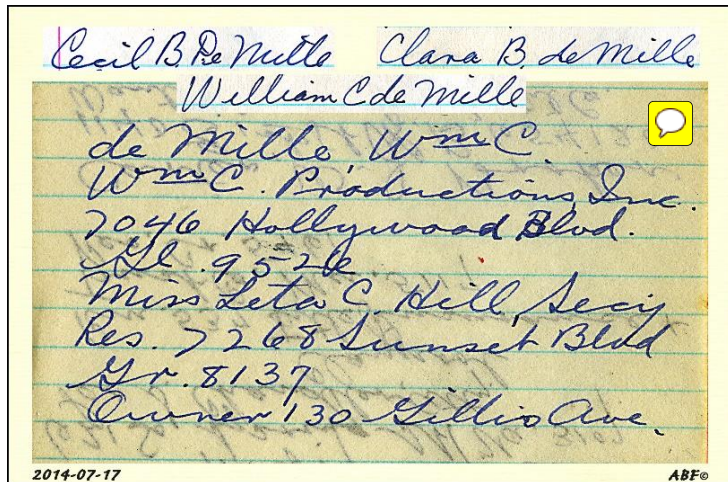 Cecil B. De Mille Clara B. de Mille
William C de Mille
de Mille Wm C
Wm C. Productions, Inc.
7046 Hollywood Blvd.
Gl. 9526
Miss Leta C. Hill, Secy
Res. 7268 Sunset Blvd
Gr. 8137
Owner 130 Gillis Ave.
2014-07-17 ABF©